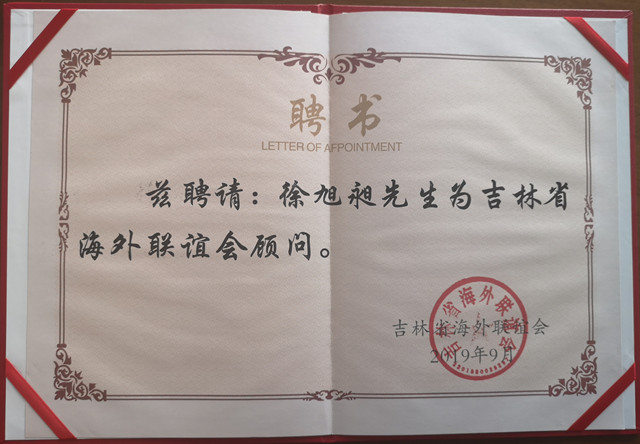 聘书
LETTER OF APPOINTMENT
兹聘请：徐旭昶先生为吉林省
海外联谊会顾问。
吉林省海外联谊会
吉林省海外联谊会
2019年9月